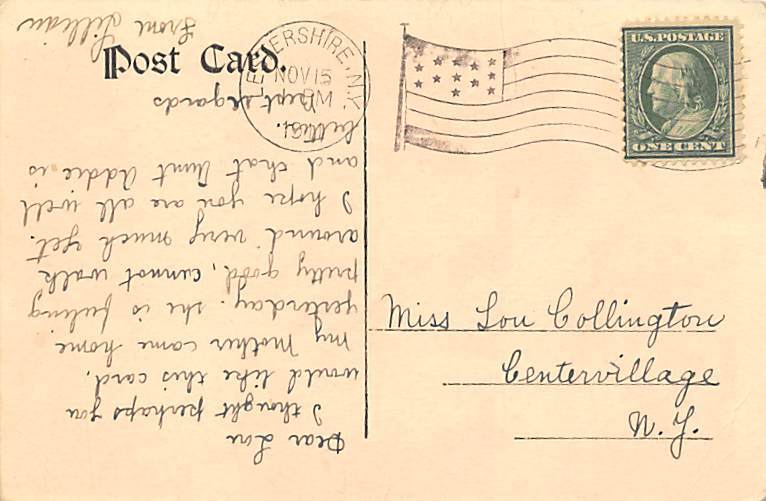 Post Card.
ERSHIRE, N.Y.
NOV 15
U.S. POSTAGE
ONE CENT
Miss Lou Collington
Centervillage
N. Y.
Dear Lou
I thought perhaps you
would like this card.
My Mother came home
yesterday. she is feeling
pretty good, cannot walk
around very much yet.
I hope you are all well
and that Aunt Addie is
better.
regards
From Lillian